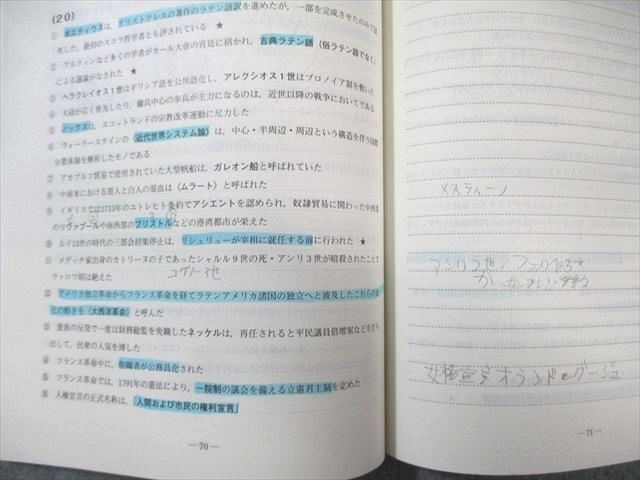 (20)
① ボエティウスは、アリストテレスの著作のラテン語訳を進めたが、一部を完成させたのみで
死した。最初のスコラ哲学者とも評されている ★
② アルクィンなど多くの学者がカール大帝の宮廷に招かれ、古典ラテン語（俗ラテン語でなく）
による議論がなされた ★
③ ヘラクレイオス1世はギリシア語を公用語化し、アレクシオス1世はプロノイア制を敷いた
④ 大砲が広く普及したり、傭兵中心の歩兵が主力になるのは、近世以降の戦争においてである
⑤ ノックスは、スコットランドの宗教改革運動に尽力した
⑥ ウォーラーステインの〈近代世界システム論〉は、中心・半周辺・周辺という構造を伴う国際
分業体制を解析したモノである
⑦ アカプルコ貿易で使用されていた大型帆船は、ガレオン船と呼ばれていた
⑧ 中南米における黒人と白人の混血は〈ムラート〉と呼ばれた
⑨ イギリスでは1713年のユトレヒト条約でアシエントを認められ、奴隷貿易に関わった中西部
のリヴァプールや南西部のブリストルなどの港湾都市が栄えた
⑩ ルイ13世の時代の三部会招集停止は、リシュリューが宰相に就任する前に行われた ★
⑪ メディチ家出身のカトリーヌの子であったシャルル9世の死・アンリ3世が暗殺されたことで
ヴァロワ朝は絶えた
⑫ アメリカ独立革命からフランス革命を経てラテンアメリカ諸国の独立へと波及したこれらの変
化の動きを〈大西洋革命〉と呼んだ
⑬ 貴族の反発で一度は財務総監を免職したネッケルは、再任されると平民議員倍増案などを打ち
出して、民衆の人気を博した
⑭ フランス革命中に、聖職者が公務員化された
⑮ フランス革命では、1791年の憲法により、一院制の議会を備える立憲君主制を定めた
⑯ 人権宣言の正式名称は、「人間および市民の権利宣言」
—70—
メスティーソ
—71—